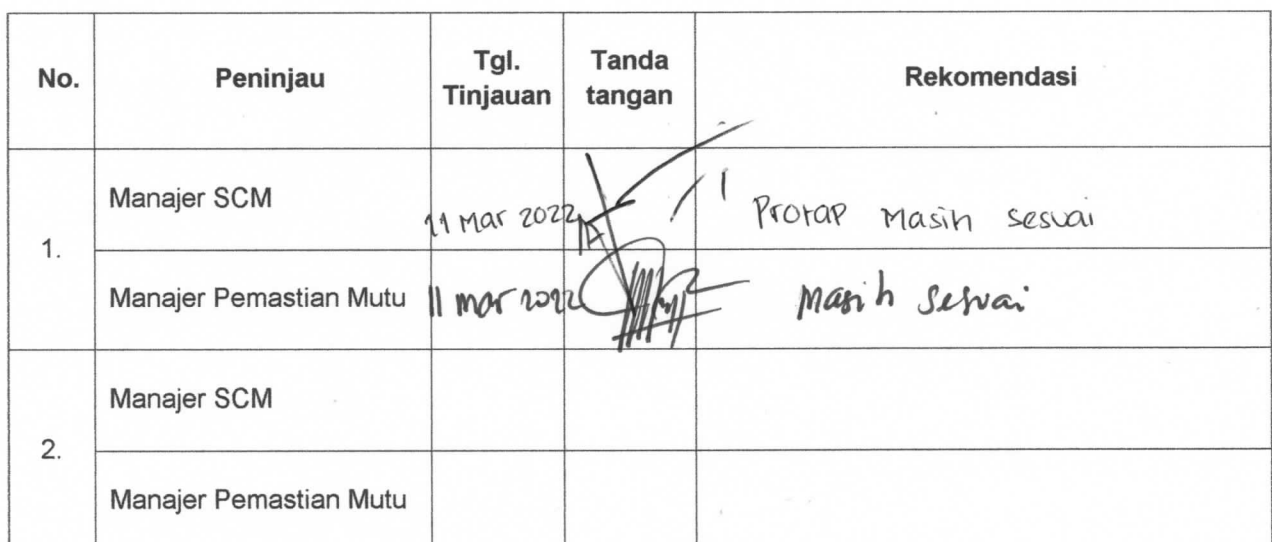 No. Peninjau Tgl. Tinjauan Tanda tangan Rekomendasi
1.
Manajer SCM 11 Mar 2022 Protap Masih sesuai
Manajer Pemastian Mutu 11 Mar 2022 Masih sesuai
2.
Manajer SCM
Manajer Pemastian Mutu